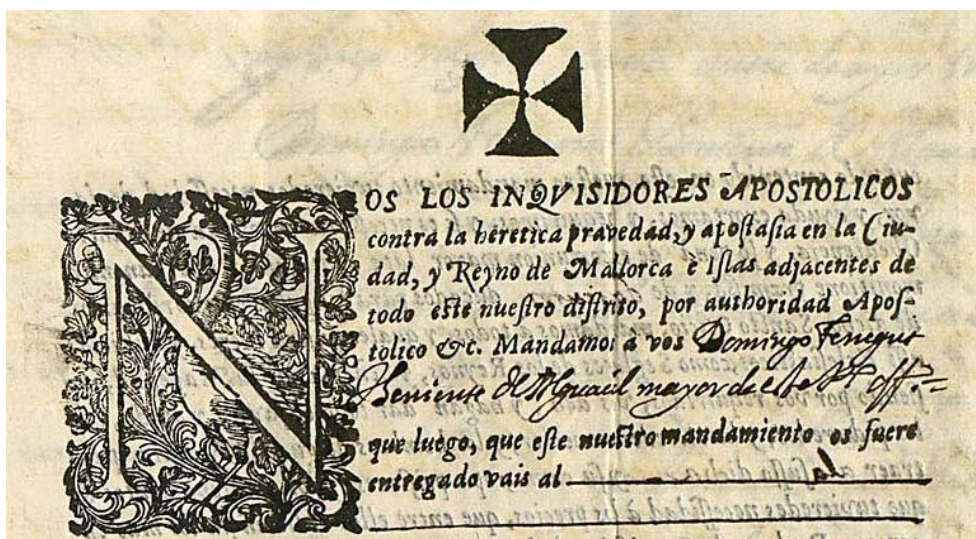 NOS LOS INQVISIDORES APOSTOLICOS
contra la heretica pravedad, y apostasia en la Ciu-
dad, y Reyno de Mallorca è Islas adjacentes de
todo este nuestro distrito, por authoridad Apos-
tolico &c. Mandamos à vos Domingo
Theniente de Alguacil mayor de este Sto. off.
que luego, que este nuestro mandamiento os fuere
entregado vais al